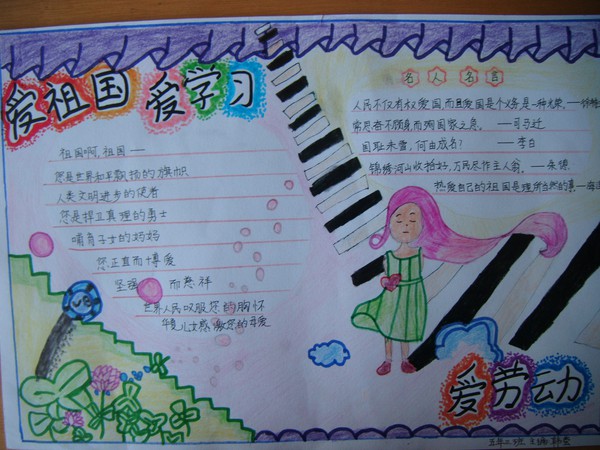 爱祖国 爱学习
祖国啊,祖国——
您是世界和平飘扬的旗帜
人类文明进步的使者
您是捍卫真理的勇士
哺育子女的妈妈
您正直而博爱
坚强 而慈祥
世界人民叹服您的胸怀
华夏儿女感激您的母爱
名人名言
人民不仅有权爱国,而且爱国是个义务,是一种光荣。——徐特
常思奋不顾身而殉国家之急。——司马迁
国耻未雪,何由成名?——李白
锦绣河山收拾好,万民尽作主人翁。——朱德
热爱自己的祖国是理所当然的事——海
爱劳动
五年二班 主编:韩